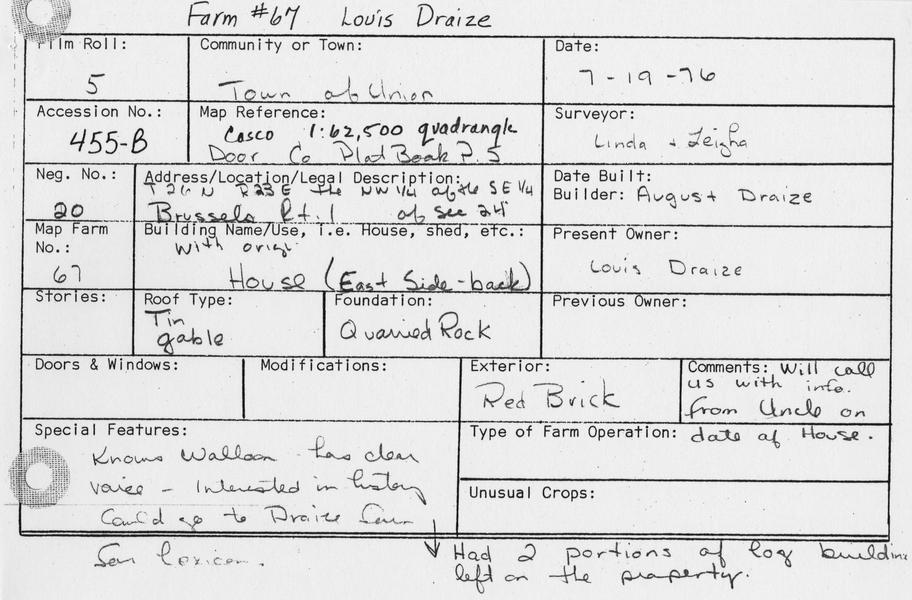 Farm #67 Louis Draize
Film Roll:
5
Community or Town:
Town of Union
Date:
7-19-76
Accession No.:
455-B
Map Reference:
Casco 1:62,500 quadrangle
Door Co Plat Book P. 5
Surveyor:
Linda + Leigha
Neg. No.:
20
Address/Location/Legal Description:
T 26 N R23 E the NW 1/4 of the SE 1/4
Brussels Rt. 1 of sec 24
Date Built:
Builder: August Draize
Map Farm
No.:
67
Building Name/Use, i.e. House, shed, etc.:
With orig.
House (East Side-back)
Present Owner:
Louis Draize
Stories:
Roof Type:
Tin
gable
Foundation:
Quarried Rock
Previous Owner:
Doors & Windows:
Modifications:
Exterior:
Red Brick
Comments: Will call
us with info.
from Uncle on
date of House.
Special Features:
Knows Walloon - has clear
voice - Interested in history
Could go to Draize
for lexicon.
Type of Farm Operation:
Unusual Crops:
Had 2 portions of log building
left on the property.